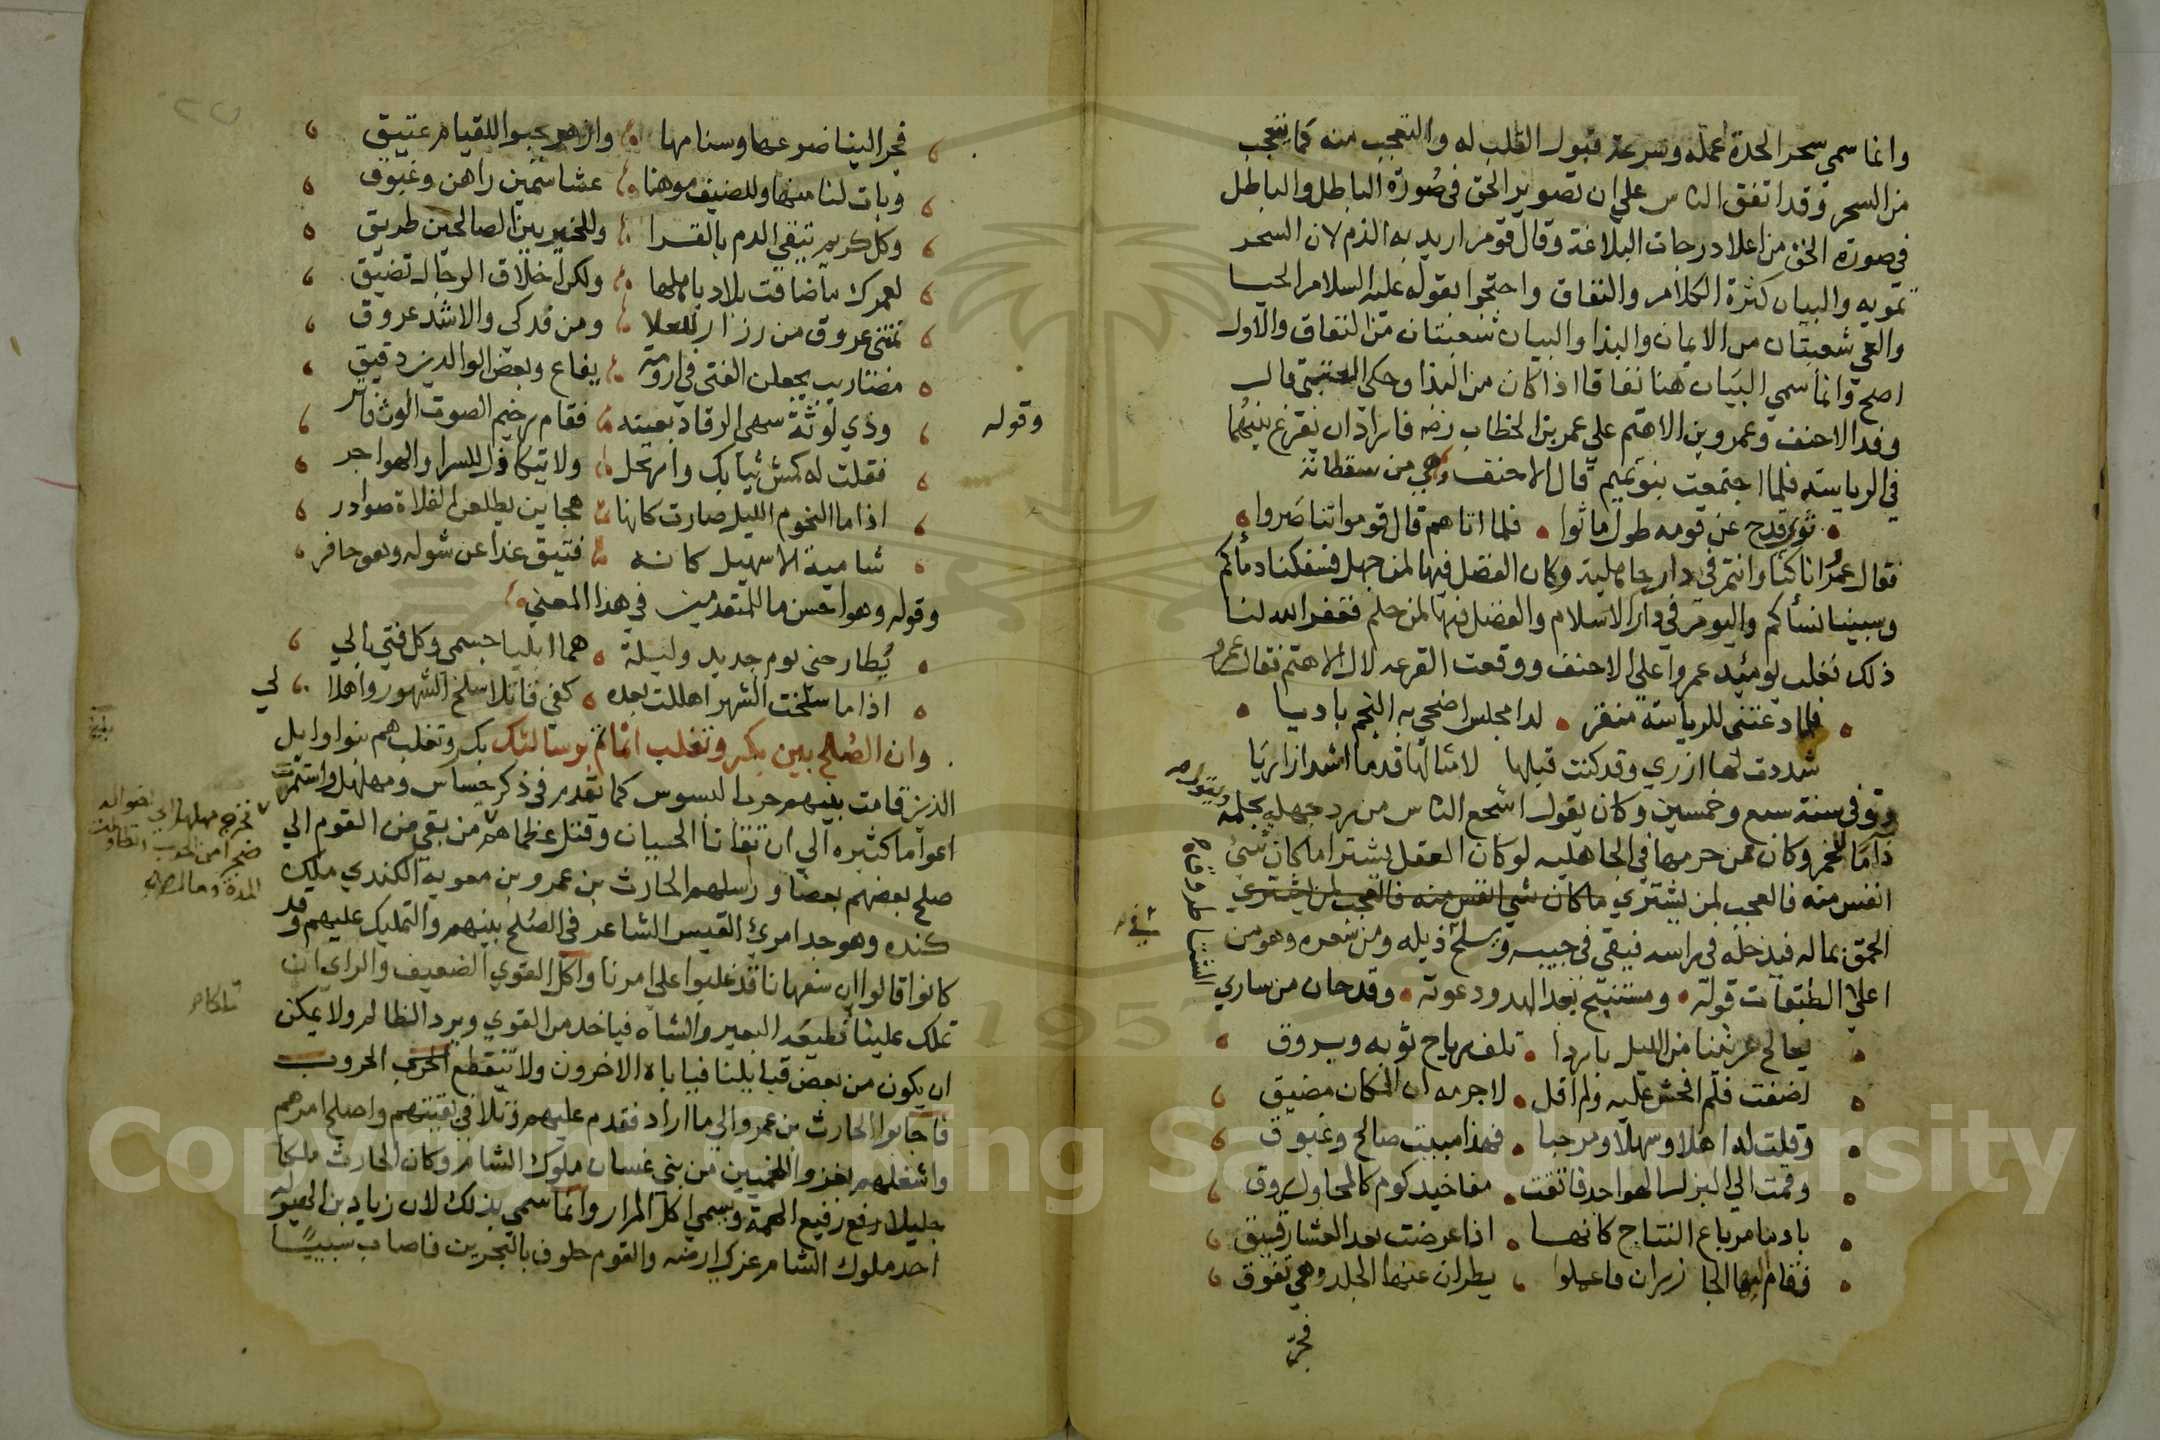 وانما سمي سحرا لحدة عمله وسرعة قبول القلب له والتعجب منه كما يتعجب
من السحر وقد اتفق الناس علي ان تصوير الحق في صورة الباطل والباطل
في صورة الحق من اعلا درجات البلاغة وقال قوم اريد به الذم لان السحر
تمويه والبيان كثرة الكلام والنفاق واحتجوا بقوله عليه السلام الحيا
والعي شعبتان من الايمان والبذا والبيان شعبتان من النفاق والاول
اصح وانما سمي البيان هنا نفاقا اذا كان من البذا وحكى العتبي قال
وفد الاحنف وعمرو بن الاهتم علي عمر بن الخطاب رضه فاراد ان يقرع بينهما
في الرياسة فلما اجتمعت بنو تميم قال الاحنف وهي من سقطاته
ثوى قدح عن قومه طول ما ثوا فلما اتاهم قال قوموا تناصروا
فقال عمرو انا كنا وانتم في دار جاهلية وكان الفضل فيها لمن جهل فسفكنا دماكم
وسبينا نسأكم واليوم في دار الاسلام والفضل فيها لمن حلم فغفر الله لنا
ذلك فغلب يومئيد عمروا علي الاحنف ووقعت القرعه لال الاهتم فقال عمرو
فلما دعتني للرياسة منقر لدا مجلس اضحى به النجم باديا
شددت لها ازري وقد كنت قبلها لامثالها قدما اشد ازاريا
وتوفي سنة سبع وخمسين وكان يقول اشجع الناس من رد جهله بحلمه
ذاما للخمر وكان ممن حرمها في الجاهليه لو كان العقل يشترا ما كان شئ
انفس منه فالعجب لمن يشتري ما كان شي انفس منه فالعجب لمن يشتري
الحمق بماله فيدخله في راسه فيقي في جيبه ويسلح في ذيله ومن شعره وهو من
اعلي الطبقات قوله ومستنبح بعد الهدو دعوته وقد حان من ساري
الشتا طروق
يعالج عرنينا من الليل باردا تلف رياح ثوبه وبروق
اضفت فلم افحش عليه ولم اقل لاحرمه ان المكان مضيق
وقلت له اهلا وسهلا ومرحبا فهذا مبيت صالح وغبوق
وقمت الي البزل الهواجد فاتقت مقاحيد كوم كالمجادل روق
بادما مرباع النتاج كانها اذا عرضت بعد العشار فنيق
فقام اليها الجازران فاعلوا يطيران عنها الجلد وهي تفوق
فجر
فجر الينا ضرعها وسنامها وازهر يحبوا للقيام عتيق
وبات لنا منها وللضيف موهنا عشا سمين راهن وغبوق
وكل كريم تتقي الذم بالقرا وللخير بين الصالحين طريق
لعمرك ما ضاقت بلاد باهلها ولكن اخلاق الرجال تضيق
نمتني عروق من زرارة للعلا ومن فدكي والاشد عروق
مضاريب يجعلن الفتى في ارومة يفاع وبعض الوالدين دقيق
وقوله
وذي لوثة سهي الرقاد بعينه فقام رخيم الصوت الوث فاتر
فقلت له كمش ثيابك وارتحل ولا تتكاول للسرا والهواجر
اذا ما النجوم الليل صارت كانها هجاين يطلعن الفلاة صوادر
شامية الا سهيل كانه فنيق غدا عن شوله وهو جافر
وقوله وهو احسن ما للمتقدمين في هذا المعني
يُطارحني يوم جديد وليلة هما ابليا جسمي وكل فتي بالي
اذا ما سلخت الشهر اهللت بعده كفي قاتلا سلخ الشهور واهلا لي
وان الصلح بين بكر وتغلب انما تم برسالتك بكر وتغلب هم بنوا وايل
الذين قامت بينهم حرب البسوس كما تقدم في ذكر جساس ومهلهل واستمرت
اعواما كثيره الي ان تفانا الحييان وقتل عظماهم من بقي من القوم الي
فخرج مهلهل الي اخواله ضجرا من الحرب
صلح بعضهم بعضا وراسلهم الحارث بن عمرو بن معويه الكندي مليك
كنده وهو جد امرئ القيس الشاعر في الصلح بينهم والتمليك عليهم وقد
كانوا قالوا ان سفهانا قد غلبوا علي امرنا واكل القوي الضعيف والراي ان
تملك علينا ملكا نطيعه البعير والشاه فياخد من القوي ويرد الظالم ولا يمكن
ان يكون من بعض قبايلنا فيا باه الاخرون ولا تنقطع الحرب الحروب
فاجابوا الحارث بن عمرو الي ما اراد فقدم عليهم وتلافي بقيتهم واصلح امرهم
واشغلهم بغزو اللخميين من بني غسان ملوك الشام وكان الحارث ملكا
جليلا رفع رفيع الهمة ويسمي اكل المرار وانما سمي بذلك لان زياد بن الهبوله
احد ملوك الشام عزك ارضه والقوم خلوف بالبحرين فاصاب سبيا
Copyright King Saud University
1957